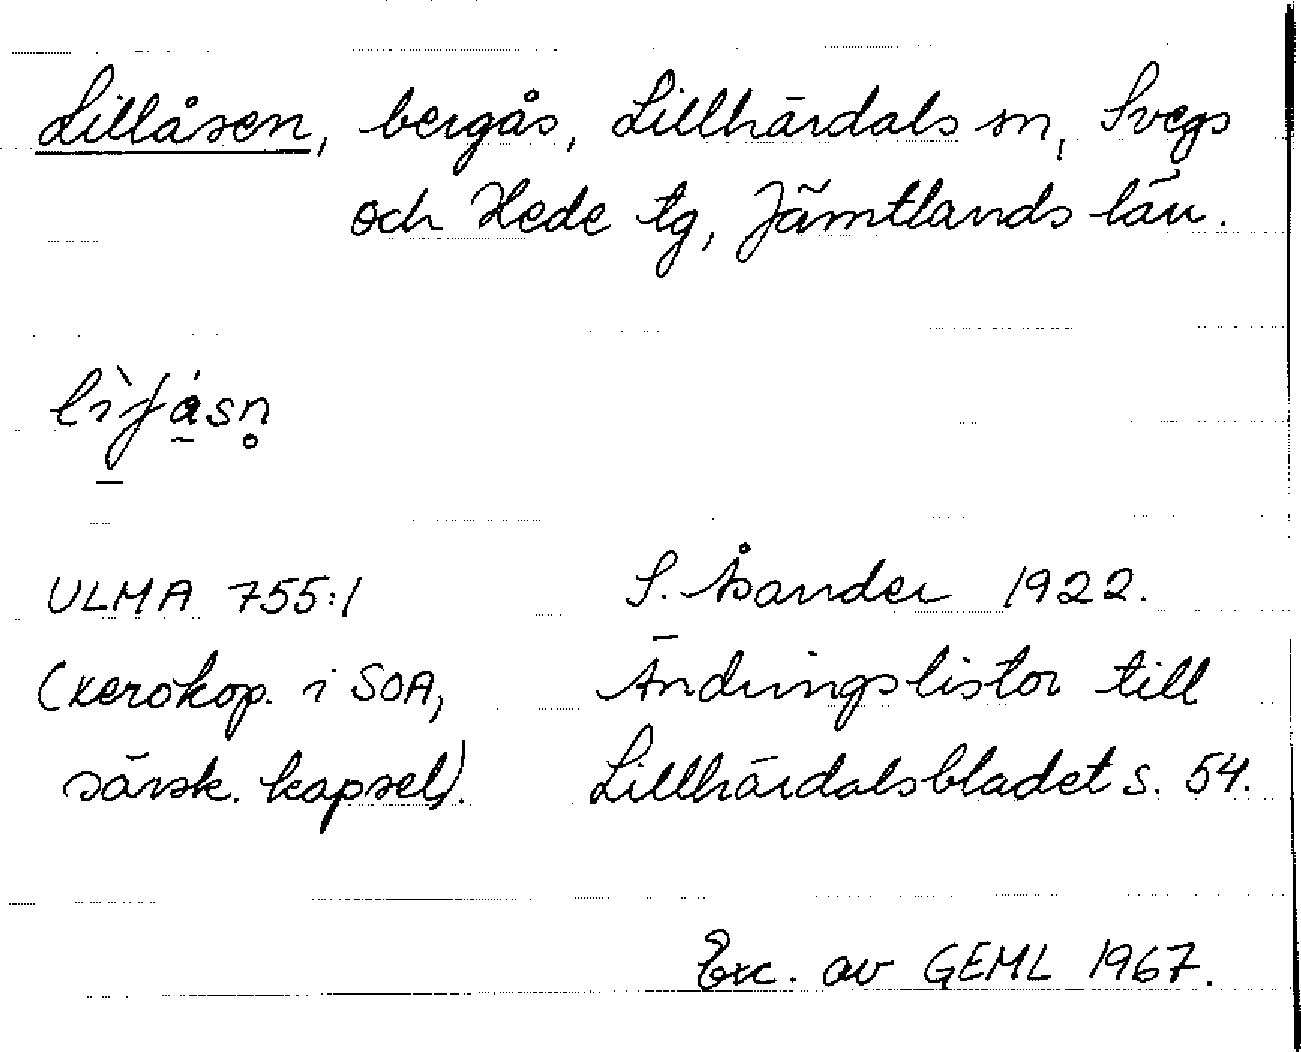 Lillåsen, bergås, Lillhärdals sn, Svegs
och Hede tg, Jämtlands län.
ULMA 755:1
S. Åsander 1922.
(xerokop. i SOA,
Ändringslistor till
särsk. kapsel).
Lillhärdalsbladet s. 54.
Exc. av GEML 1967.